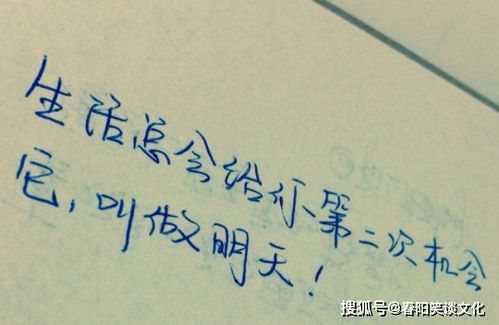 生活总会给你第二次机会
它,叫做明天!
搜狐号@春阳笑谈文化